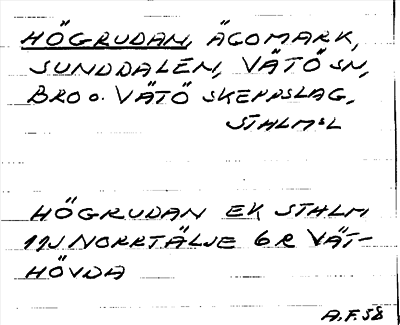 HÖGRUDAN, ÄGOMARK,
SUNDDALEN, VÄTÖ SN,
BRO O. VÄTÖ SKEPPSLAG,
STHLMSL
HÖGRUDAN EK STHLM
11J NORRTÄLJE 6R VÄT-
HÖVDA
A.F.58